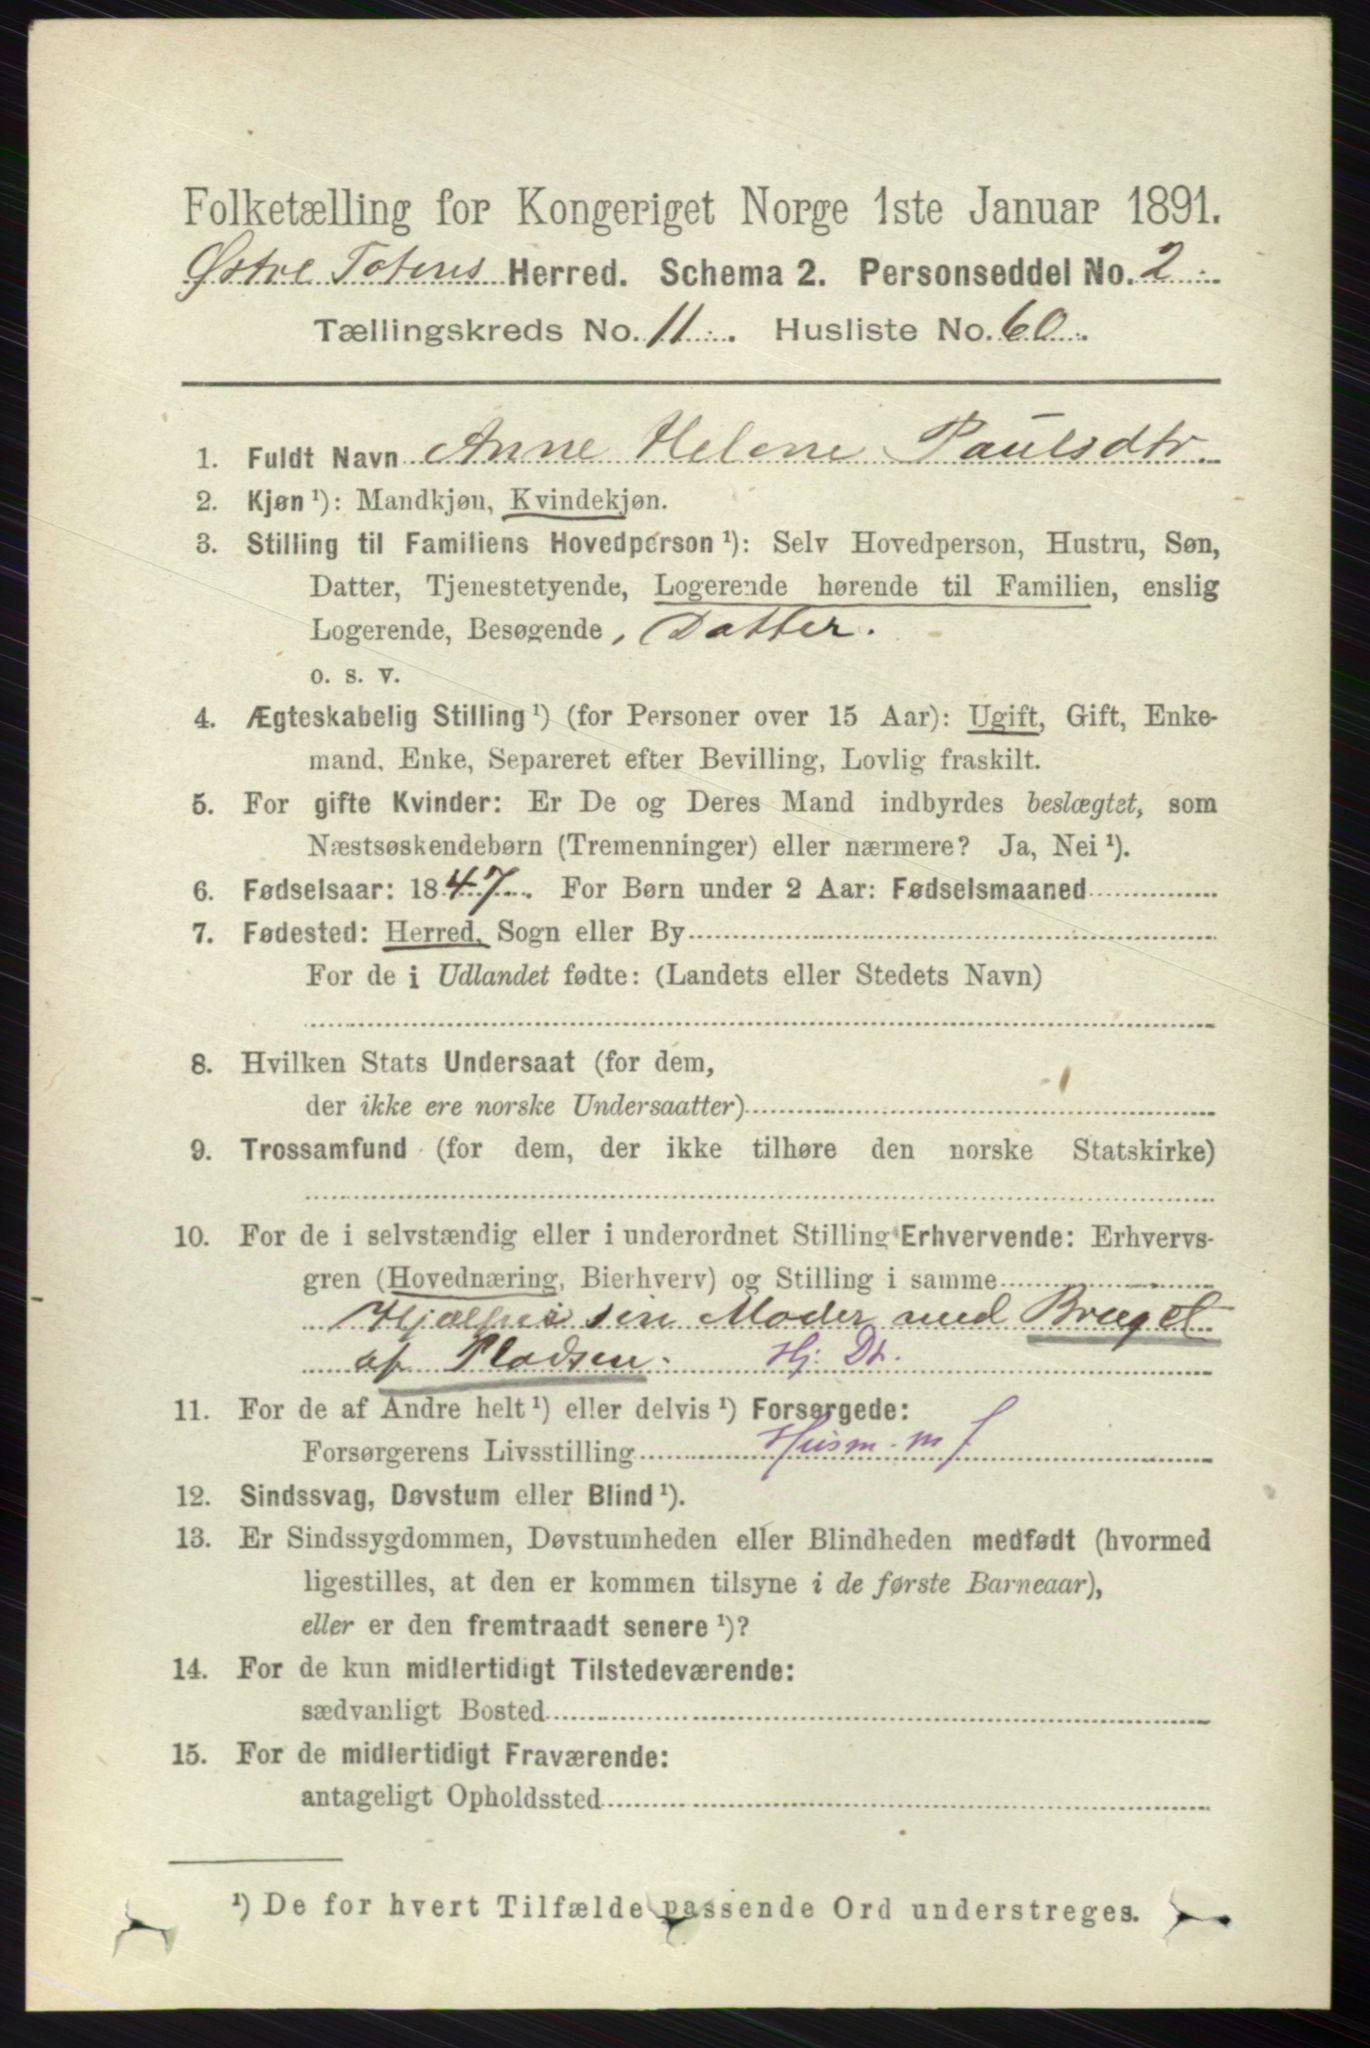 Folketælling for Kongeriget Norge 1ste Januar 1891.
Østre Totens Herred. Schema 2. Personseddel No. 2
Tællingskreds No. 11. Husliste No. 60.
1. Fuldt Navn Anne Helene Paulsdtr.
2. Kjøn ¹): Mandkjøn, Kvindekjøn.
3. Stilling til Familiens Hovedperson ¹): Selv Hovedperson, Hustru, Søn,
Datter, Tjenestetyende, Logerende hørende til Familien, enslig
Logerende, Besøgende, Datter.
o. s. v.
4. Ægteskabelig Stilling ¹) (for Personer over 15 Aar): Ugift, Gift, Enke-
mand, Enke, Separeret efter Bevilling, Lovlig fraskilt.
5. For gifte Kvinder: Er De og Deres Mand indbyrdes beslægtet, som
Næstsøskendebørn (Tremenninger) eller nærmere? Ja, Nei ¹).
6. Fødselsaar: 1847. For Børn under 2 Aar: Fødselsmaaned
7. Fødested: Herred, Sogn eller By
For de i Udlandet fødte: (Landets eller Stedets Navn)
8. Hvilken Stats Undersaat (for dem,
der ikke ere norske Undersaatter)
9. Trossamfund (for dem, der ikke tilhøre den norske Statskirke)
10. For de i selvstændig eller i underordnet Stilling Erhvervende: Erhvervs-
gren (Hovednæring, Bierhverv) og Stilling i samme
Hjælper sin Moder med Bruget
af Pladsen. Hj. Dt.
11. For de af Andre helt ¹) eller delvis ¹) Forsørgede:
Forsørgerens Livsstilling Husm. m f
12. Sindssvag, Døvstum eller Blind ¹).
13. Er Sindssygdommen, Døvstumheden eller Blindheden medfødt (hvormed
ligestilles, at den er kommen tilsyne i de første Barneaar),
eller er den fremtraadt senere ¹)?
14. For de kun midlertidigt Tilstedeværende:
sædvanligt Bosted
15. For de midlertidigt Fraværende:
antageligt Opholdssted
¹) De for hvert Tilfælde passende Ord understreges.